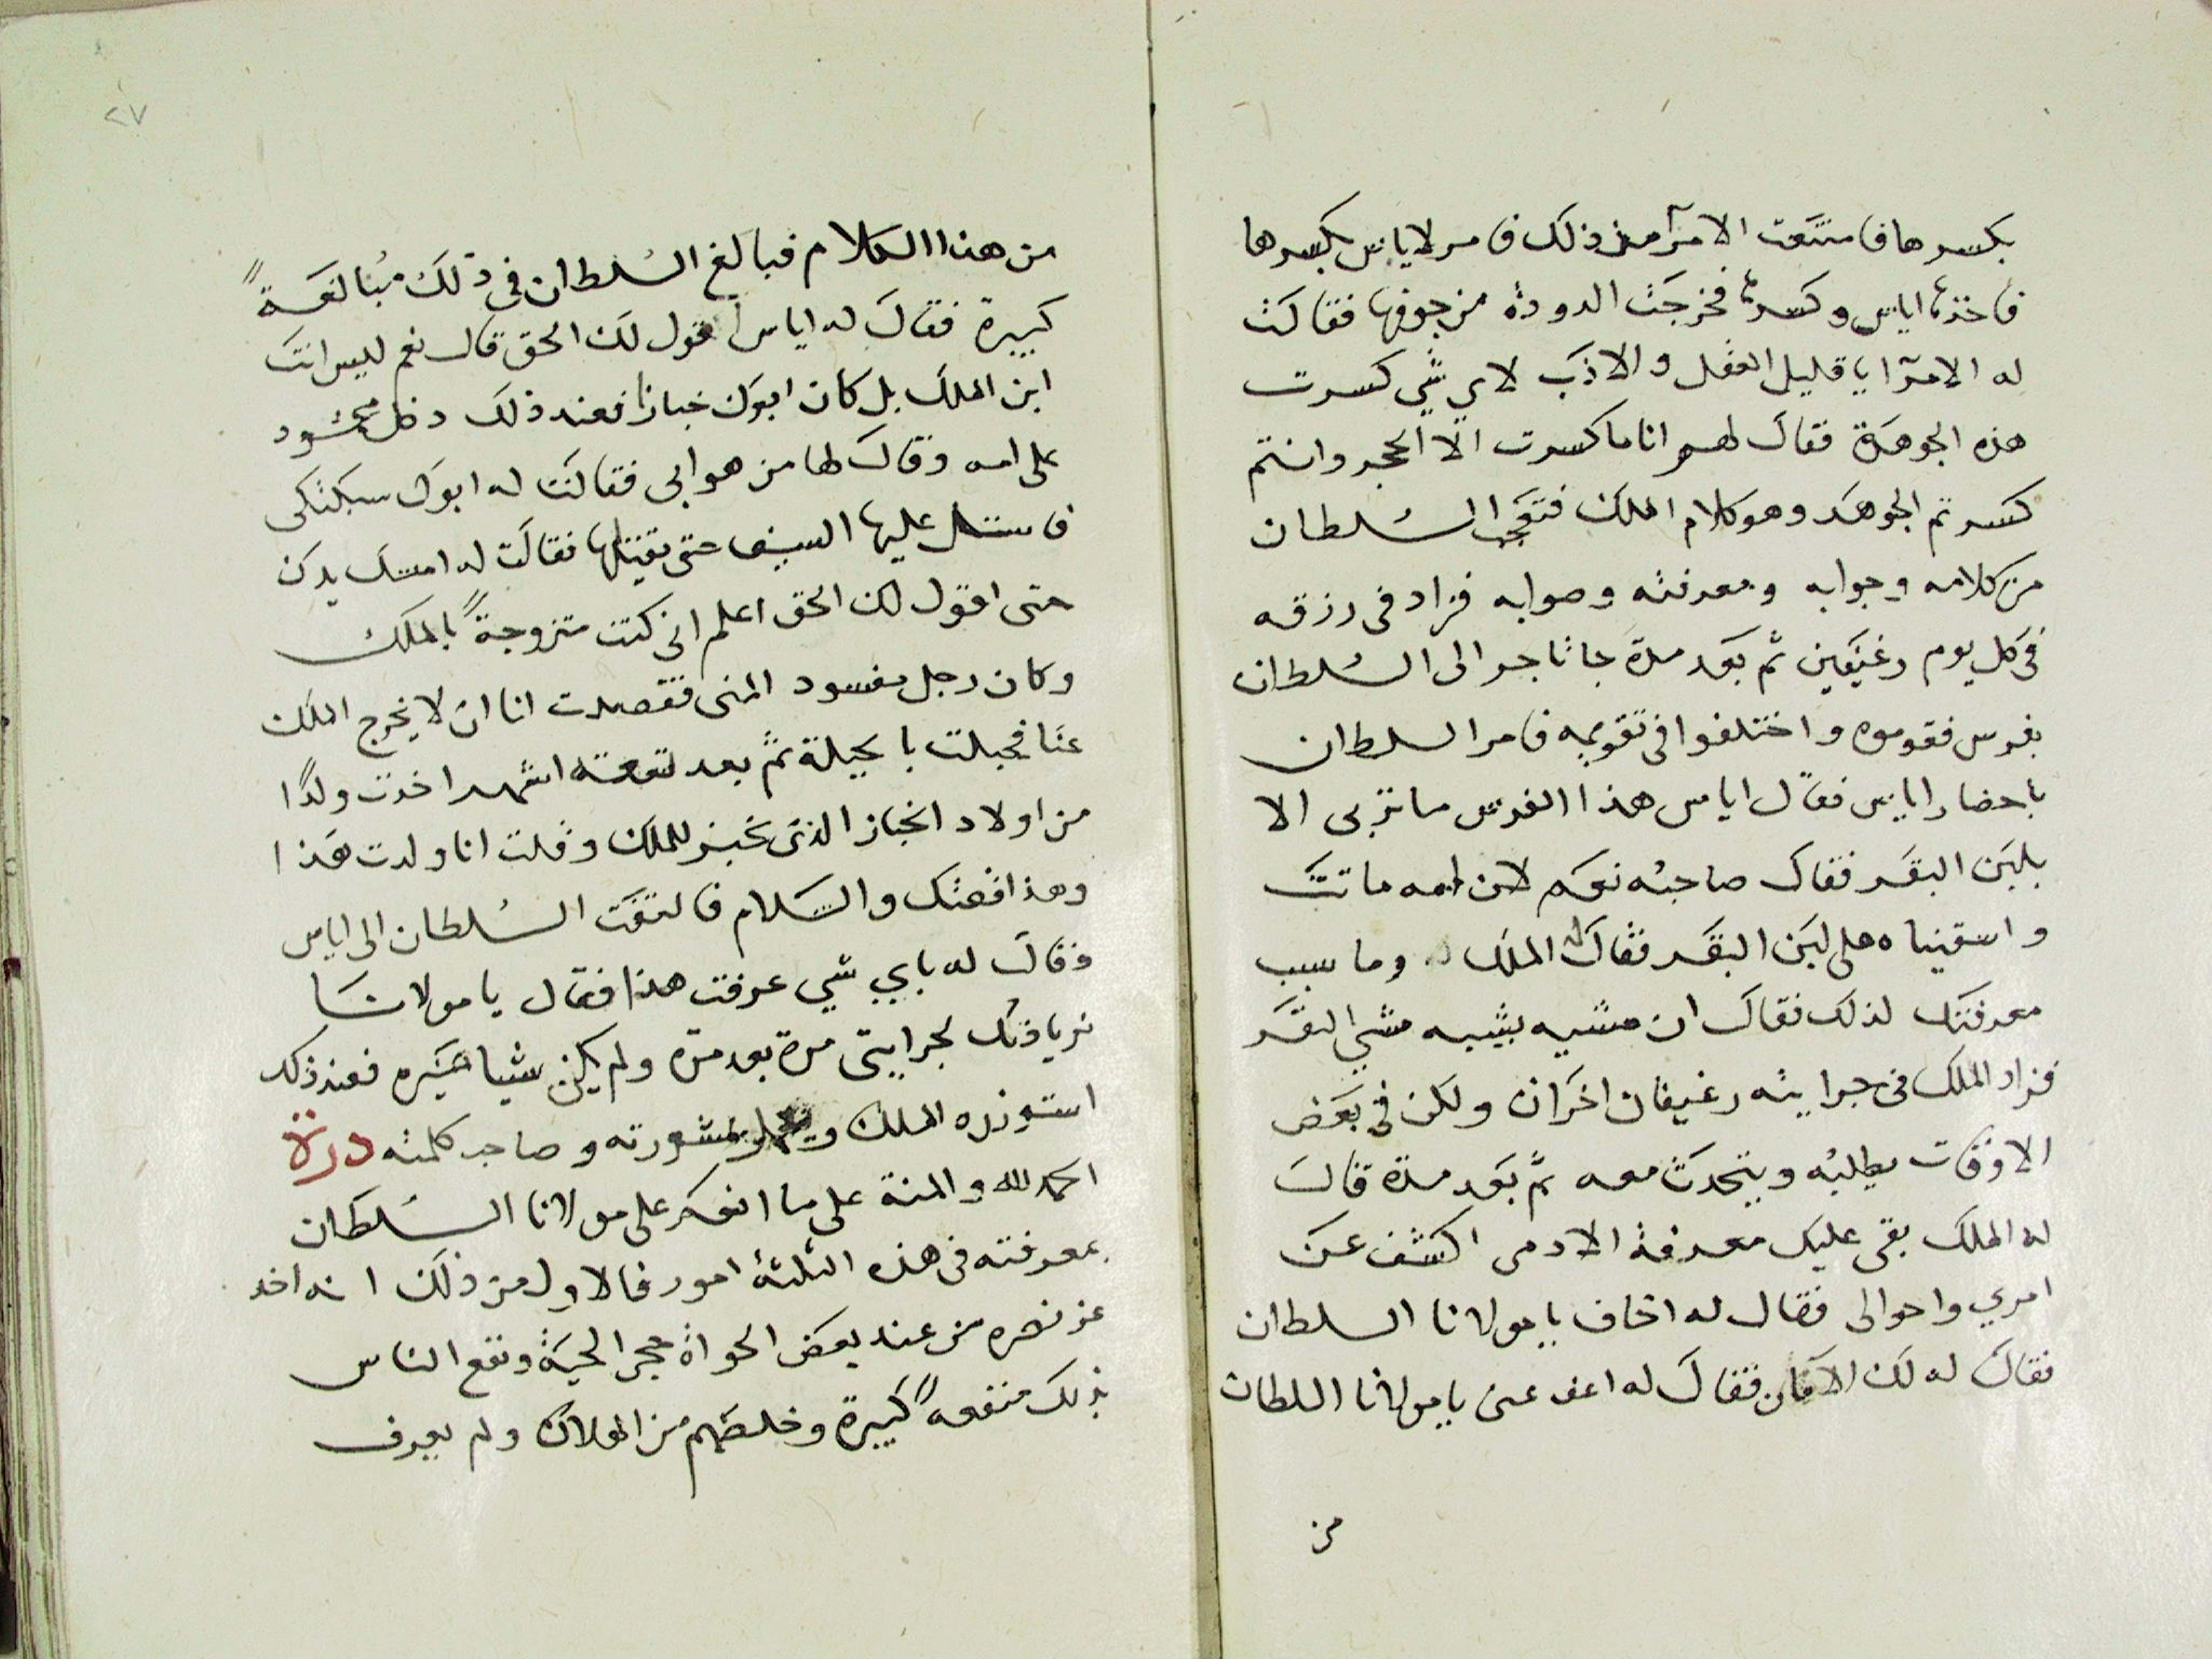 بكسرها فامتنعت الامرآ من ذلك فامر لاياس بكسرها
فاخذها اياس وكسرها فخرجت الدودة من جوفها فقالت
له الامرآ يا قليل العقل والادب لاي شي كسرت
هذه الجوهرة فقال لهم انا ما كسرت الا الحجر وانتم
كسرتم الجوهر وهو كلام الملك فتعجب السلطان
من كلامه وجوابه ومعرفته وصوابه فزاد في رزقه
في كل يوم رغيفين ثم بعد مدة جا تاجر الى السلطان
بفرس فقوموه واختلفوا في تقويمه فامر السلطان
باحضار اياس فقال اياس هذا الفرس ما تربى الا
بلبن البقر فقال صاحبه نعم لان امه ماتت
واسقيناه على لبن البقر فقال له الملك وما سبب
معرفتك لذلك فقال ان مشيه يشبه مشي البقر
فزاد الملك في جرايته رغيفان اخران ولكن في بعض
الاوقات يطلبه ويتحدث معه ثم بعد مدة قال
له الملك بقى عليك معرفة الادمى اكشف عن
امري واحوالى فقال له اخاف يا مولانا السلطان
فقال له لك الامان فقال له اعف عنى يا مولانا السلطان
من
٢٧
من هذا الكلام فبالغ السلطان في ذلك مبالغة
كبيرة فقال له اياس اقول لك الحق قال نعم ليس انت
ابن الملك بل كان ابوك خبازا فعند ذلك دخل محمود
على امه وقال لها من هو ابى فقالت له ابوك سبكتكى
فاستل عليها السيف حتى يقتلها فقالت له امسك يدك
حتى اقول لك الحق اعلم انى كنت متزوجة بالملك
وكان رجل مفسود المنى فقصدت انا ان لا يخرج الملك
عنا فحبلت بالحيلة ثم بعد تسعة اشهر اخذت ولدا
من اولاد الخباز الذى يخبز للملك وقلت انا ولدت هذا
وهذا قصتك والسلام فالتفت السلطان الى اياس
وقال له باي شي عرفت هذا فقال يا مولانا
زيادتك لجرايتى مرة بعد مرة ولم يكن شيا غيره فعند ذلك
استوزره الملك بمشورته وصاحب كلمته درة
الحمد لله والمنة على ما انعم على مولانا السلطان
بمعرفته في هذه الثلثة امور فالاول من ذلك انه اخذ
عز نصره من عند بعض الحواة حجر الحية ونفع الناس
بذلك منفعة كبيرة وخلصهم من الهلاك ولم يعرف